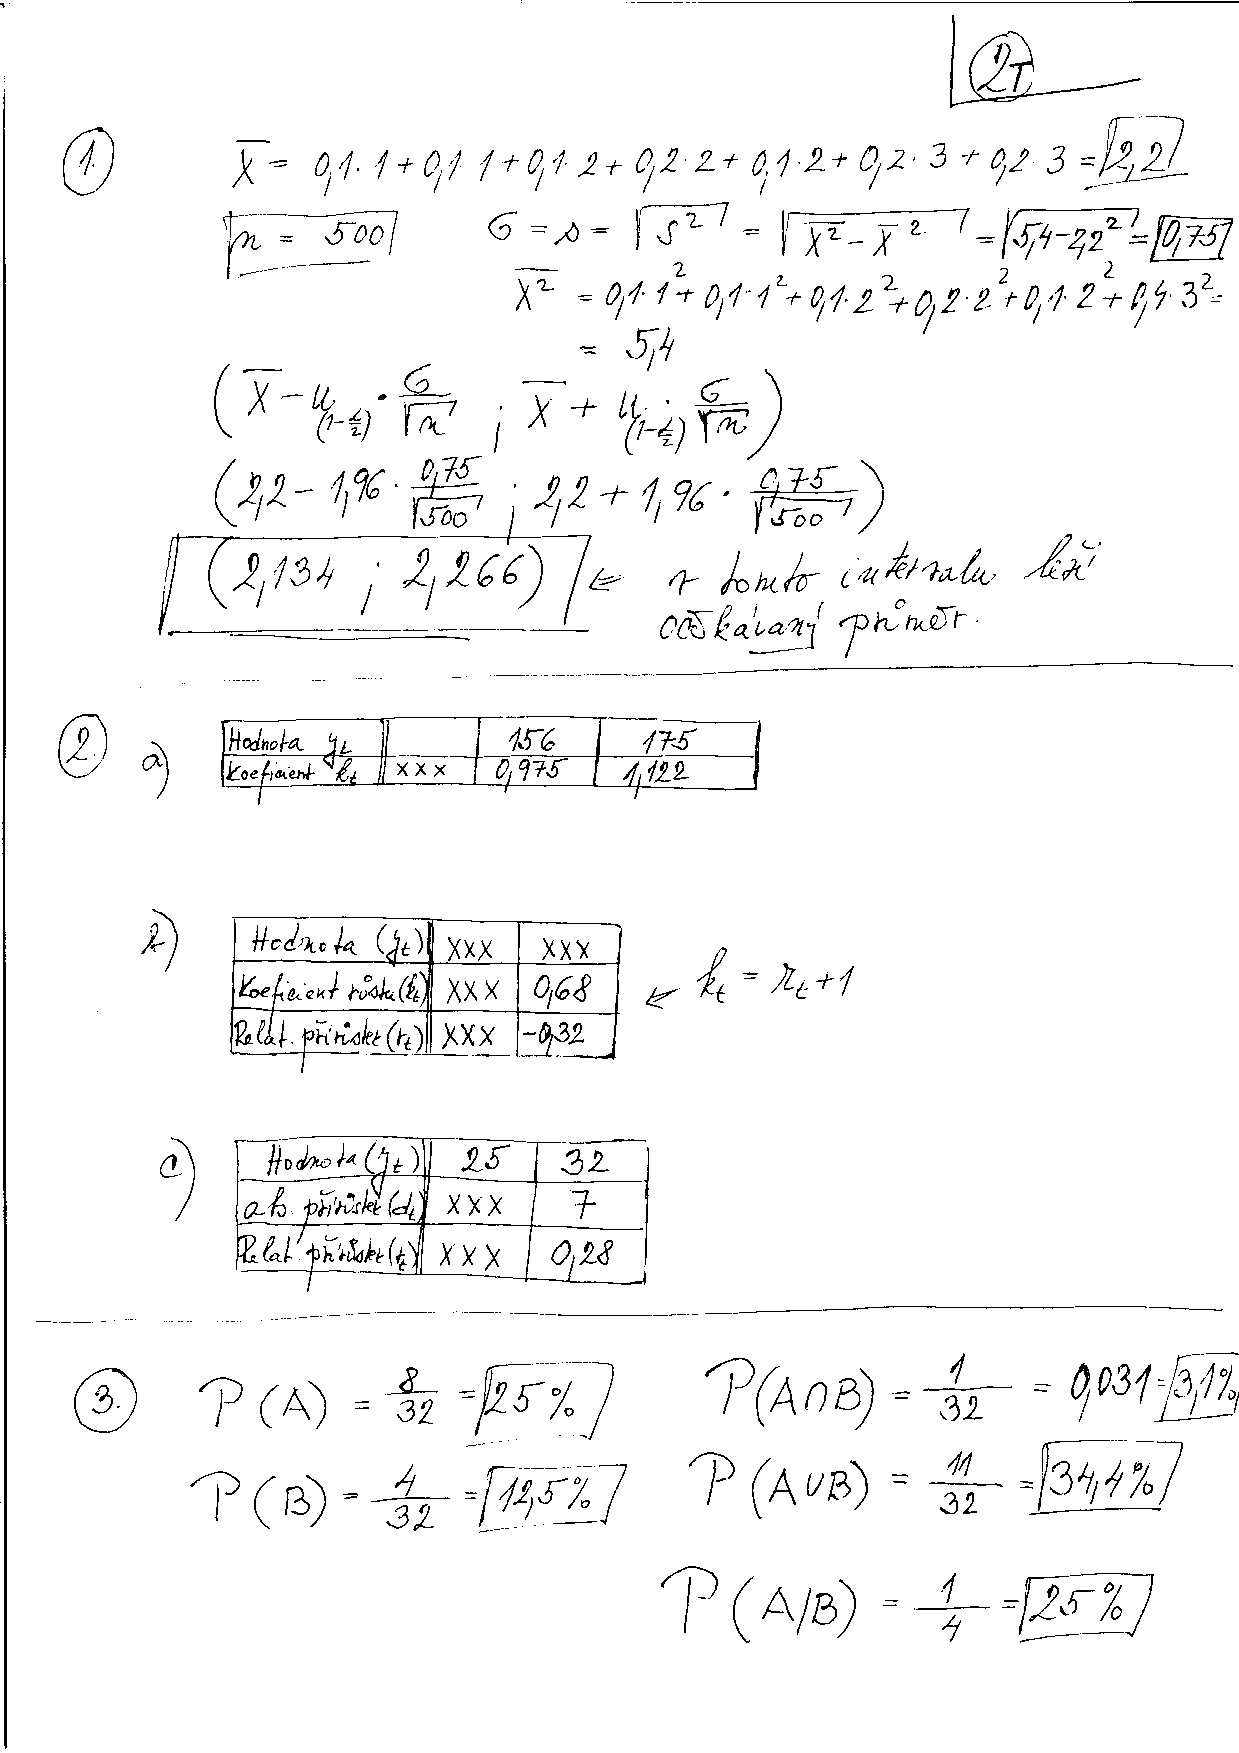 2T
1. X̄ = 0,1·1 + 0,1·1 + 0,1·2 + 0,2·2 + 0,1·2 + 0,2·3 + 0,2·3 = 2,2
n = 500 σ = s = √s² = √(X̄² − X̄²) = √(5,4 − 2,2²) = 0,75
X̄² = 0,1·1² + 0,1·1² + 0,1·2² + 0,2·2² + 0,1·2² + 0,4·3² =
= 5,4
(X̄ − u(1−α/2) · σ/√n ; X̄ + u(1−α/2) · σ/√n)
(2,2 − 1,96 · 0,75/√500 ; 2,2 + 1,96 · 0,75/√500)
(2,134 ; 2,266) ⇐ v tomto intervalu leží
očekávaný průměr.
2. a) Hodnota yt 156 175
Koeficient kt xxx 0,975 1,122
b) Hodnota (yt) xxx xxx
Koeficient růstu (kt) xxx 0,68 ⇐ kt = rt + 1
Relat. přírůstek (rt) xxx −0,32
c) Hodnota (yt) 25 32
ab. přírůstek (dt) xxx 7
Relat. přírůstek (rt) xxx 0,28
3. P(A) = 8/32 = 25% P(A∩B) = 1/32 = 0,031 = 3,1%
P(B) = 4/32 = 12,5% P(A∪B) = 11/32 = 34,4%
P(A/B) = 1/4 = 25%